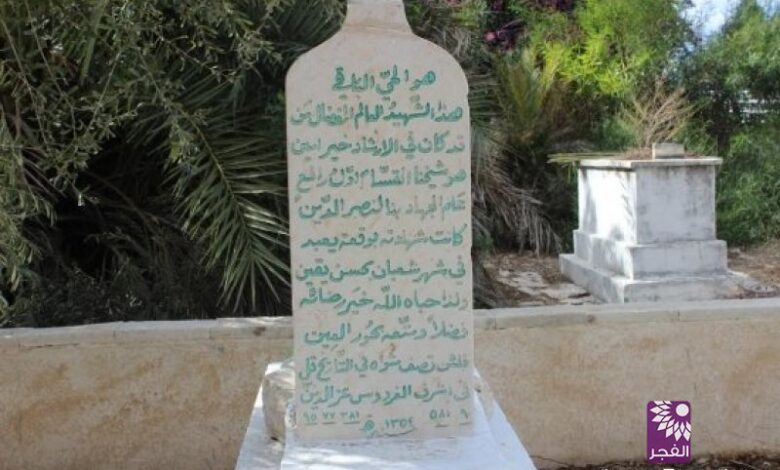 هو الحيّ الباقي
هذا الشهيد العالم المفضال من
قد كان في الارشاد خير امين
هو شيخنا القسّام اوّل رافع
علم الجهاد بنا لنصر الدّين
كانت شهادته بوقعة يعبد
في شهر شعبان كحسن يقين
ولذا حباه اللّه خير رضائه
فضلاً ومتّعه بحور العين
فلئن تصف مثواه في التّاريخ قل
في اشرف الفردوس عزّ الدين
٩ ٥٨١ ٣٨١ ٧٧ ٩٥
١٣٥٤ هـ
الفجر